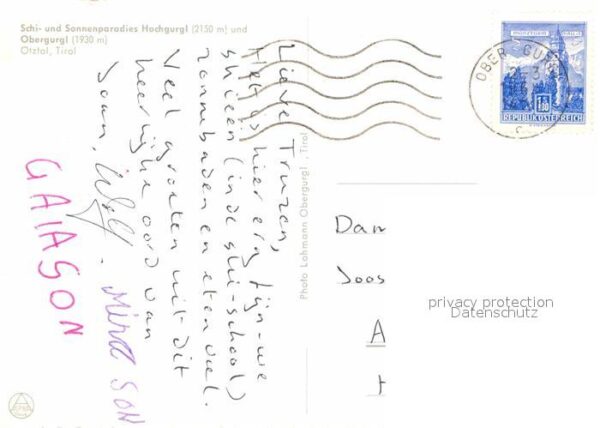 Schi- und Sonnenparadies Hochgurgl (2150 m) und
Obergurgl (1930 m)
Ötztal, Tirol
Lieve Truzen,
Het is hier erg fijn - we
skiën (in de ski-school)
zonnebaden en eten veel.
Veel groeten uit dit
heerlijke oord van
Joan, Wolf.
MIRA SON
GAIA SON
Photo Lohmann Obergurgl, Tirol
OBERGURGL
MÜNZTURM HALL
1.80
REPUBLIK ÖSTERREICH
Dam
Joos
A
privacy protection
Datenschutz